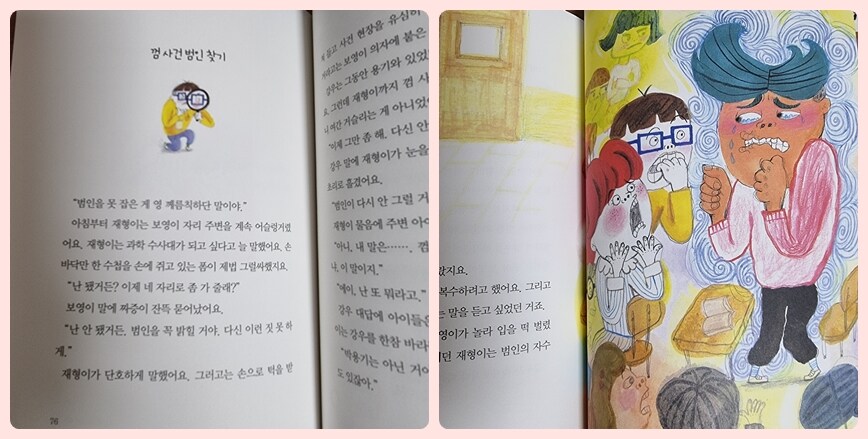 껌 사건 범인 찾기
"범인을 못 잡은 게 영 께름칙하단 말이야."
아침부터 재형이는 보영이 자리 주변을 계속 어슬렁거렸
어요. 재형이는 과학 수사대가 되고 싶다고 늘 말했어요. 손
바닥만 한 수첩을 손에 쥐고 있는 폼이 제법 그럴싸했지요.
"난 됐거든? 이제 네 자리로 좀 가 줄래?"
보영이 말에 짜증이 잔뜩 묻어났어요.
"난 안 됐거든. 범인을 꼭 밝힐 거야. 다신 이런 짓 못 하
게."
재형이가 단호하게 말했어요. 그러고는 손으로 턱을 받
76
고 사건 현장을 유심히
보영이 의자에 붙은
강우는 그동안 용기와 있었
요. 그런데 재형이까지 껌 사
니 여간 거슬리는 게 아니었
"이제 그만 좀 해. 다신 안
강우 말에 재형이가 눈을
초리로 흘겼어요.
"범인이 다시 안 그럴 거
재형이 물음에 주변 아이
"아니, 내 말은……. 껌
나, 이 말이지."
"에이, 난 또 뭐라고."
강우 대답에 아이들은
이는 강우를 한참 바라
"박용기는 아닌 거
도 있잖아."
았지요.
복수하려고 했어요. 그리고
는 말을 듣고 싶었던 거죠.
영이가 놀라 입을 떡 벌렸
던 재형이는 범인의 자수